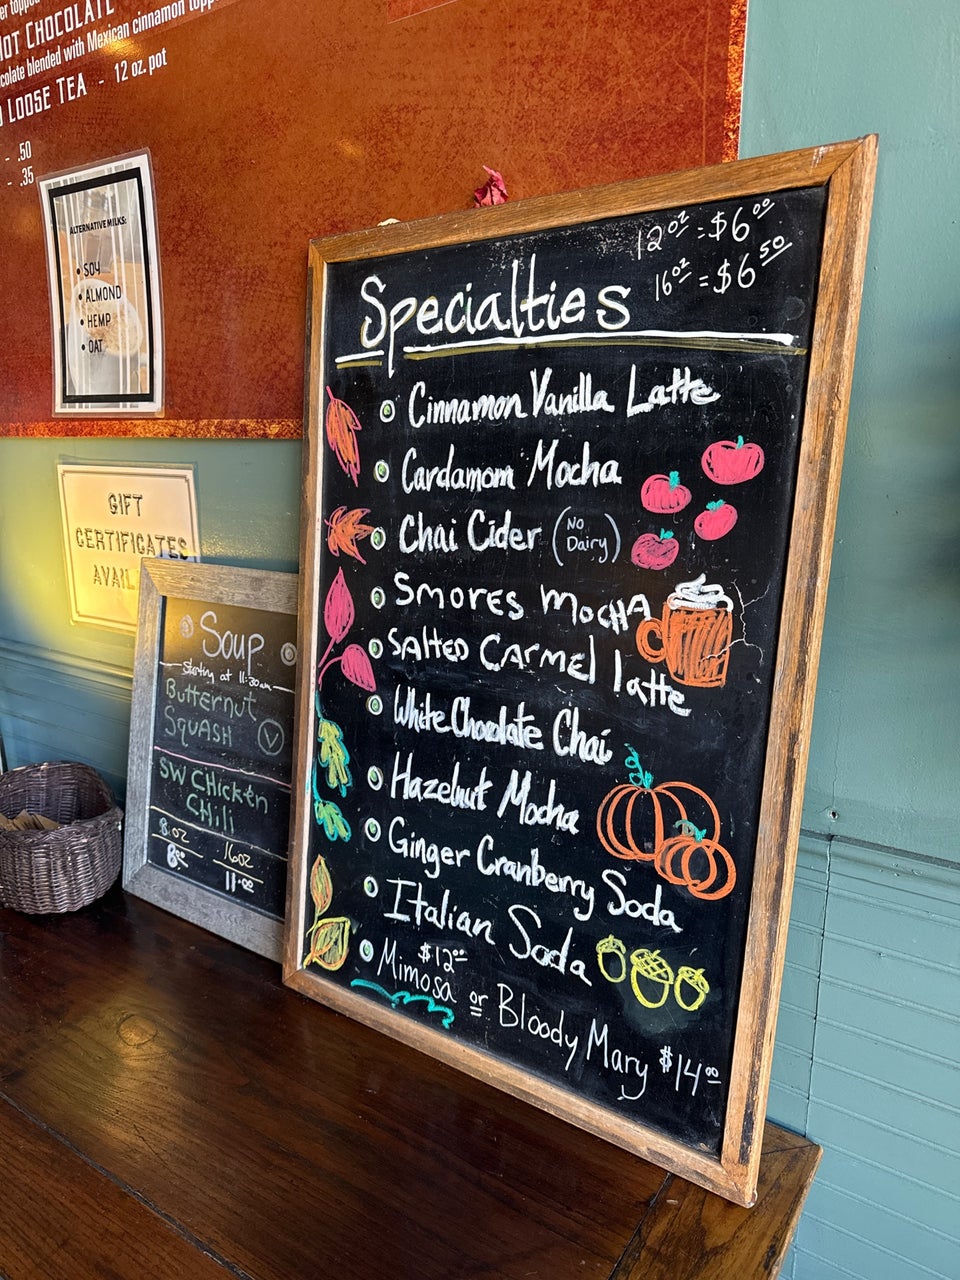 HOT CHOCOLATE
blended with Mexican cinnamon
LOOSE TEA - 12 oz. pot
- .50
- .35
ALTERNATIVE MILKS:
• SOY
• ALMOND
• HEMP
• OAT
GIFT
CERTIFICATES
Soup
Starting at 11:30am
Butternut
Squash V
SW CHicken
CHili
8oz 16oz
8.00 11.00
12oz = $6.00
16oz = $6.50
Specialties
Cinnamon Vanilla Latte
Cardamom Mocha
Chai Cider (No Dairy)
Smores Mocha
Salted Carmel latte
White Chocolate Chai
Hazelnut Mocha
Ginger Cranberry Soda
Italian Soda
$12.00
Mimosa or Bloody Mary $14.00